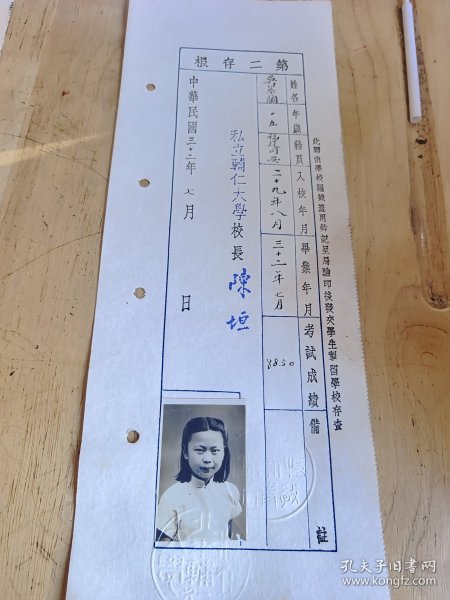 此聯由學校編號蓋用鈐記呈局驗印後發交學生留學校存查
第二存根
姓名 年歲 籍貫 入校年月 畢業年月 考試成績 備註
十五 福建 二十九年八月 三十二年七月
私立輔仁大學校長 陳垣
中華民國三十二年七月 日
孔夫子旧书网
www.kongfz.com